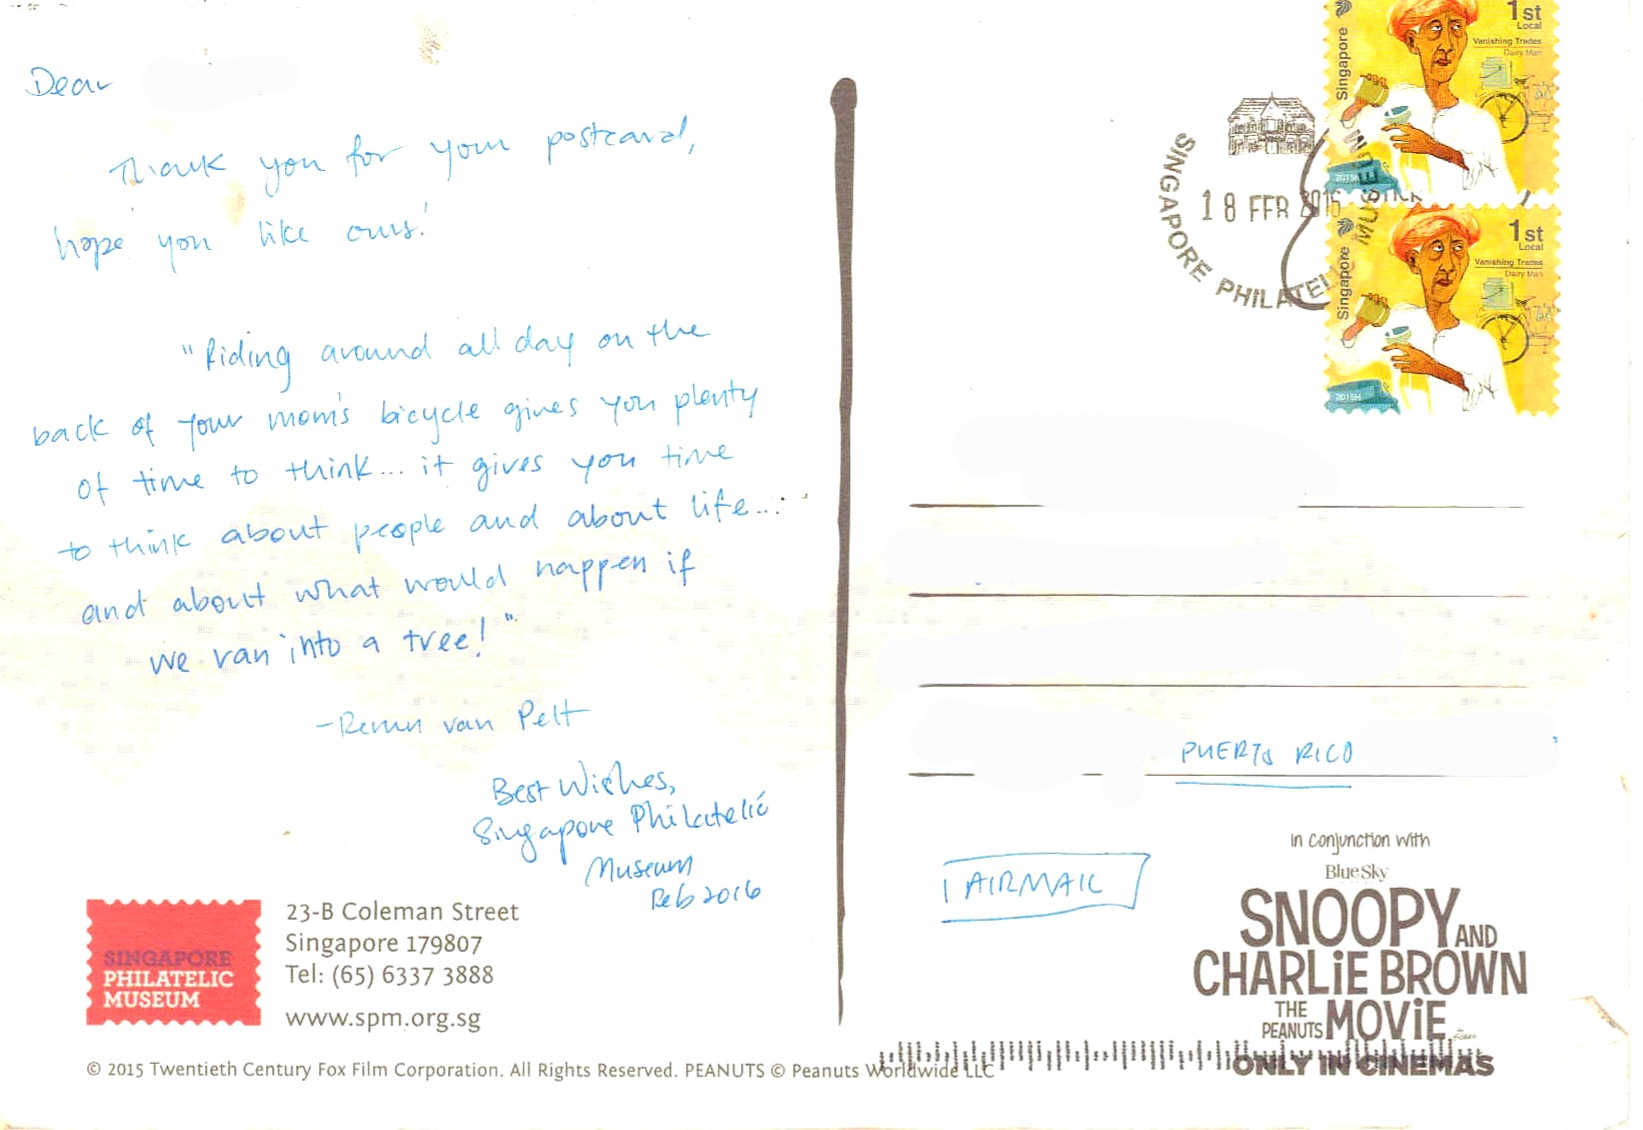 Dear
Thank you for your postcard,
hope you like ours!
"Riding around all day on the
back of your mom's bicycle gives you plenty
of time to think... it gives you time
to think about people and about life...
and about what would happen if
we ran into a tree!"
-Rerun van Pelt
Best Wishes,
Singapore Philatelic
Museum
Feb 2016
SINGAPORE
PHILATELIC
MUSEUM
23-B Coleman Street
Singapore 179807
Tel: (65) 6337 3888
www.spm.org.sg
© 2015 Twentieth Century Fox Film Corporation. All Rights Reserved. PEANUTS © Peanuts Worldwide LLC
1st
Local
Vanishing Trades
Dairy Man
Singapore
2015H
1st
Local
Vanishing Trades
Dairy Man
Singapore
2015H
SINGAPORE PHILATELIC MUSEUM
18 FEB 2016
PUERTO RICO
AIRMAIL
in conjunction with
BlueSky
SNOOPY AND
CHARLiE BROWN
THE PEANUTS MOViE
ONLY IN CINEMAS